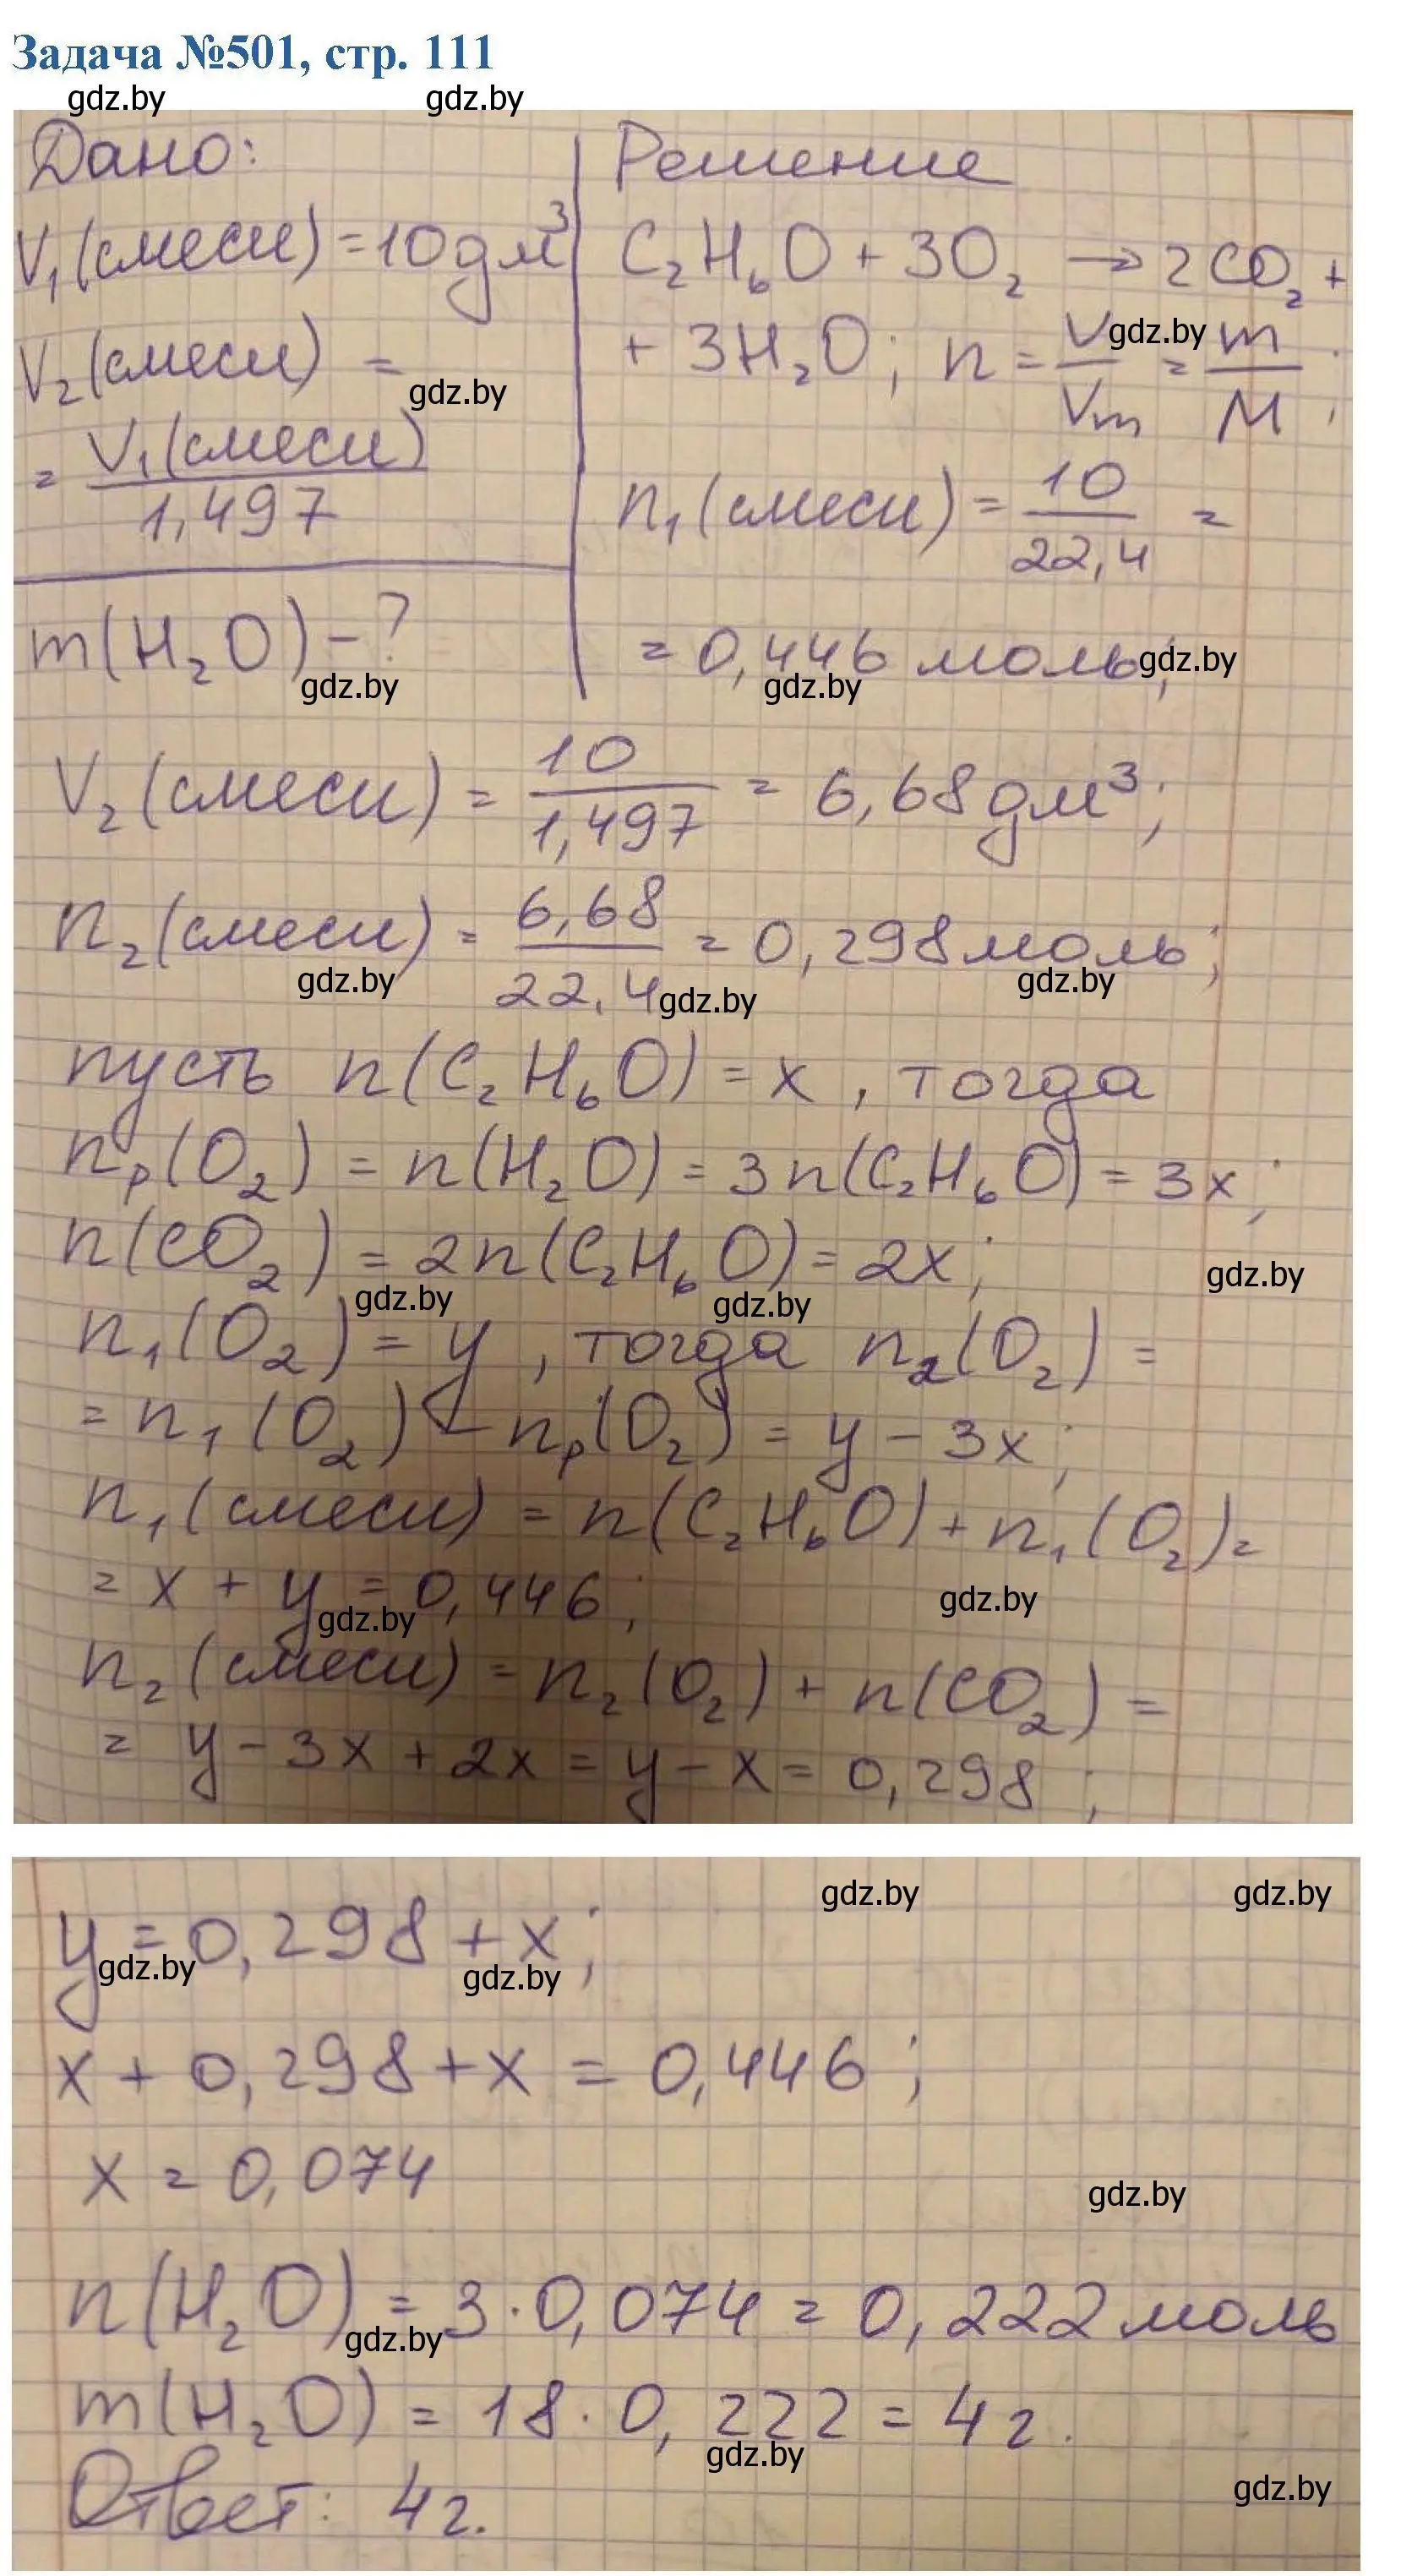 Задача №501, стр. 111
gdz.by gdz.by
Дано: Решение
V₁(смеси) = 10 дм³ C₂H₆O + 3O₂ → 2CO₂ +
V₂(смеси) = + 3H₂O; n = V/Vm = m/M;
gdz.by gdz.by
= V₁(смеси)/1,497 n₁(смеси) = 10/22,4 =
m(H₂O) - ? = 0,446 моль;
gdz.by gdz.by gdz.by
V₂(смеси) = 10/1,497 = 6,68 дм³;
n₂(смеси) = 6,68/22,4 = 0,298 моль;
gdz.by gdz.by gdz.by
пусть n(C₂H₆O) = x, тогда
nр(O₂) = n(H₂O) = 3n(C₂H₆O) = 3x;
n(CO₂) = 2n(C₂H₆O) = 2x;
gdz.by gdz.by gdz.by
n₁(O₂) = y, тогда n₂(O₂) =
= n₁(O₂) - nр(O₂) = y - 3x;
n₁(смеси) = n(C₂H₆O) + n₁(O₂) =
= x + y = 0,446;
gdz.by gdz.by
n₂(смеси) = n₂(O₂) + n(CO₂) =
= y - 3x + 2x = y - x = 0,298;
gdz.by gdz.by
y = 0,298 + x;
gdz.by gdz.by
x + 0,298 + x = 0,446;
x = 0,074
gdz.by
n(H₂O) = 3·0,074 = 0,222 моль
gdz.by
m(H₂O) = 18·0,222 = 4г.
gdz.by
gdz.by
Ответ: 4г.